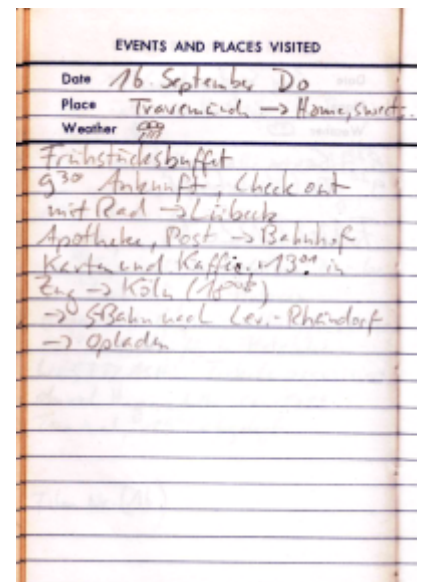 EVENTS AND PLACES VISITED
Date 16. September Do
Place Travemünde -> Home, sweet.
Weather
Frühstücksbuffet
9³⁰ Ankunft, Check out
mit Rad -> Lübeck
Apotheke, Post -> Bahnhof
Karten und Kaffee. 13⁰¹ in
Zug -> Köln (18⁰⁶)
-> SBahn nach Lev.-Rheindorf
-> Opladen